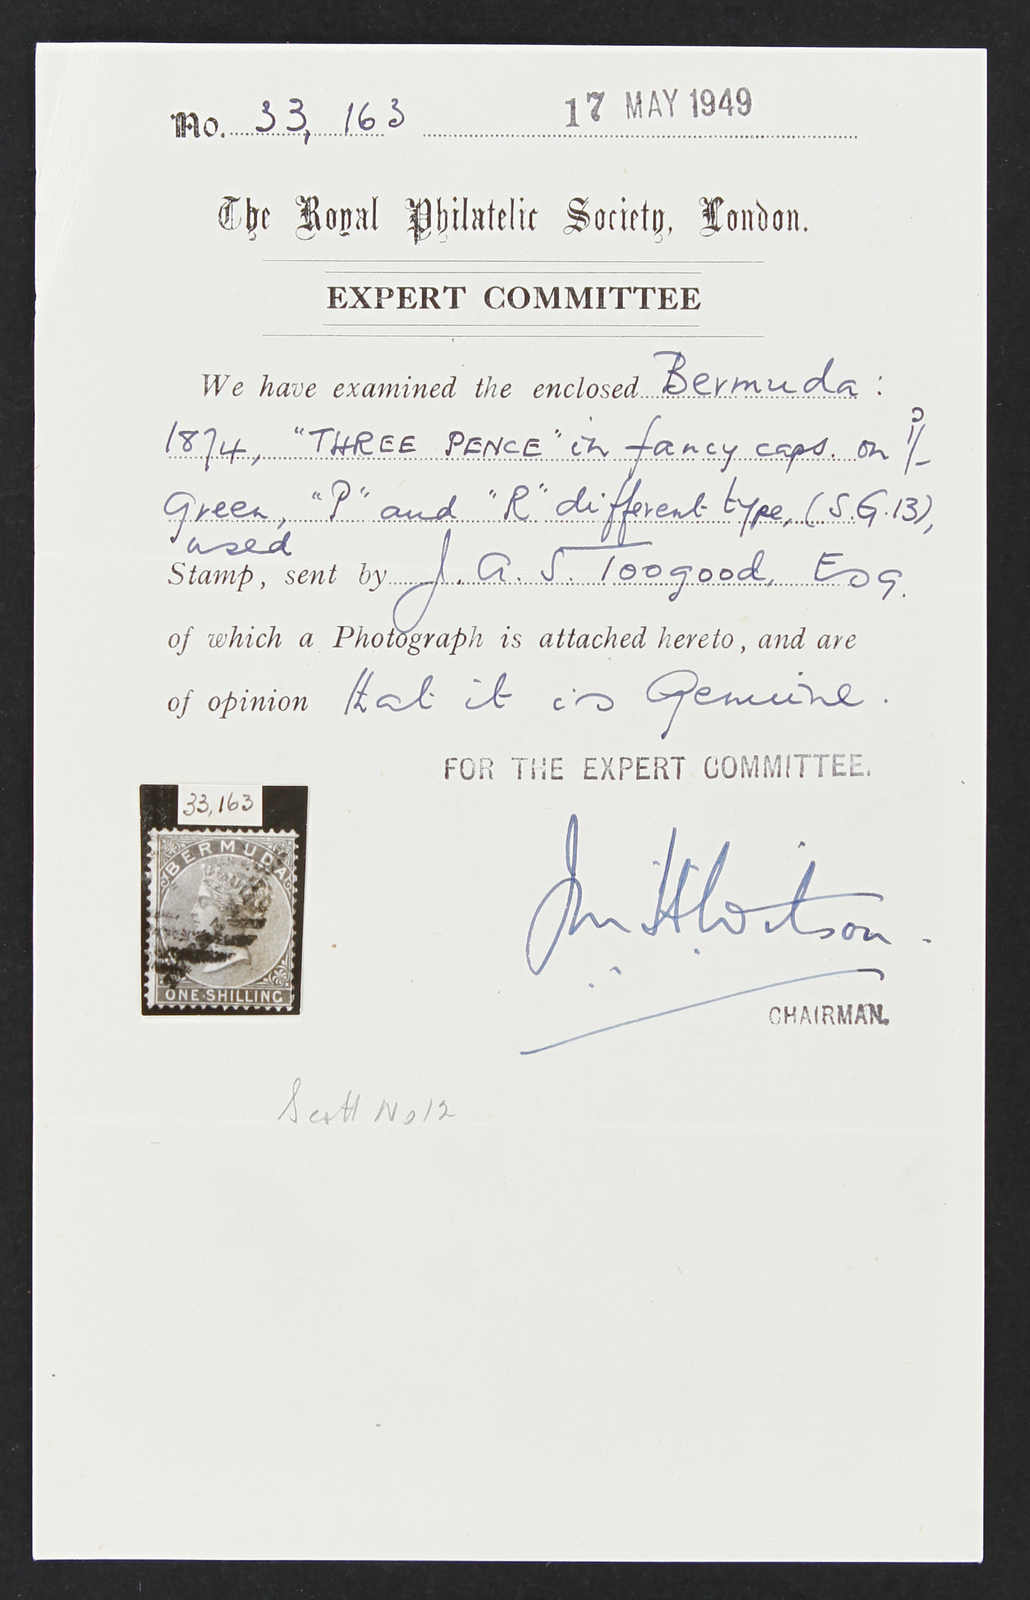 No. 33,163 17 MAY 1949
The Royal Philatelic Society, London.
EXPERT COMMITTEE
We have examined the enclosed Bermuda:
1874, "THREE PENCE" in fancy caps. on 1/-
Green, "P" and "R" different type, (S.G.13),
used
Stamp, sent by J. A. S. Toogood, Esq.
of which a Photograph is attached hereto, and are
of opinion that it is Genuine.
FOR THE EXPERT COMMITTEE.
33,163
BERMUDA
ONE SHILLING
CHAIRMAN.
Scott No 12